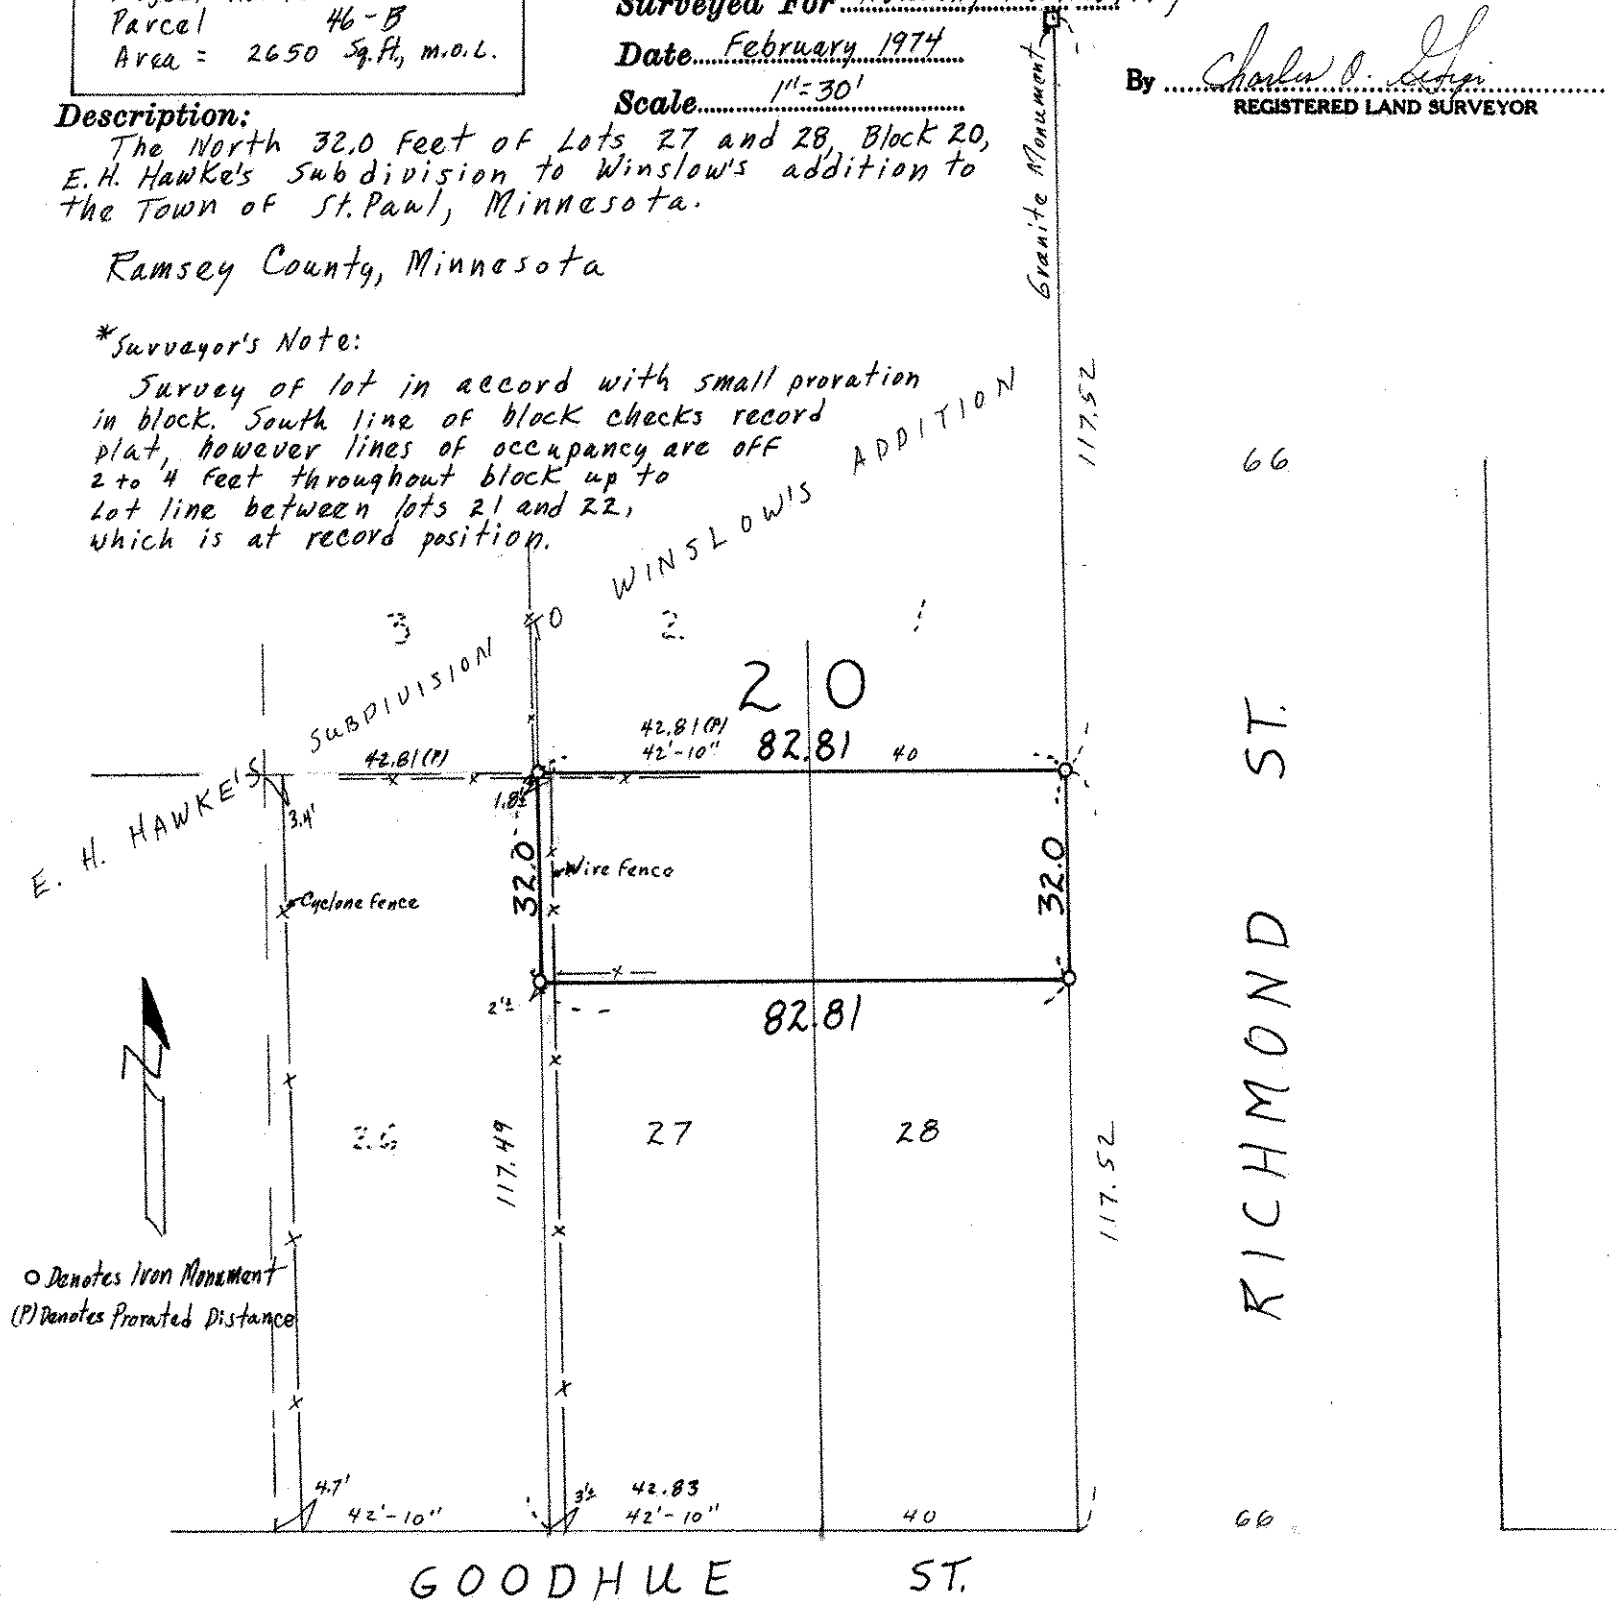 Parcel 46-B
Area = 2650 Sq.ft, m.o.l.
Surveyed For
Date February 1974
Scale 1"=30'
By Charles O.
REGISTERED LAND SURVEYOR
Description:
The North 32.0 Feet of Lots 27 and 28, Block 20,
E. H. Hawke's Subdivision to Winslow's addition to
the Town of St. Paul, Minnesota.
Ramsey County, Minnesota
*Surveyor's Note:
Survey of lot in accord with small proration
in block. South line of block checks record
plat, however lines of occupancy are off
2 to 4 feet throughout block up to
Lot line between lots 21 and 22,
which is at record position.
Granite Monument
117.52
66
E. H. HAWKE'S SUBDIVISION TO WINSLOW'S ADDITION
3
2
1
20
42.81(P)
42.81(P)
42'-10"
82.81
40
3.4'
1.8'±
32.0
Wire Fence
32.0
Cyclone Fence
2'±
82.81
26
117.49
27
28
117.52
RICHMOND ST.
O Denotes Iron Monument
(P) Denotes Prorated Distance
4.7'
42'-10"
3'±
42.83
42'-10"
40
66
GOODHUE ST.